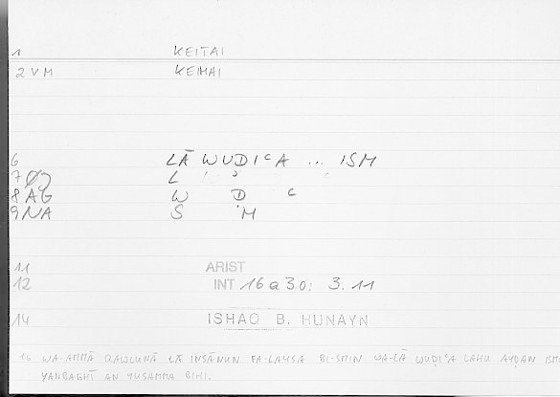 1 KEITAI
2 VM KEIMAI
6 LĀ WUDIʿA ... ISM
7 Ø L
8 AG W D ʿ
9 NA S M
11 ARIST
12 INT 16a30; 3.11
14 ISHAQ B. HUNAYN
16 WA-AMMĀ QAWLUNĀ LĀ INSĀNUN FA-LAYSA BI-SMIN WA-LĀ WUḌIʿA LAHU AYḌAN ISM
YANBAGHĪ AN YUSAMMĀ BIHI.